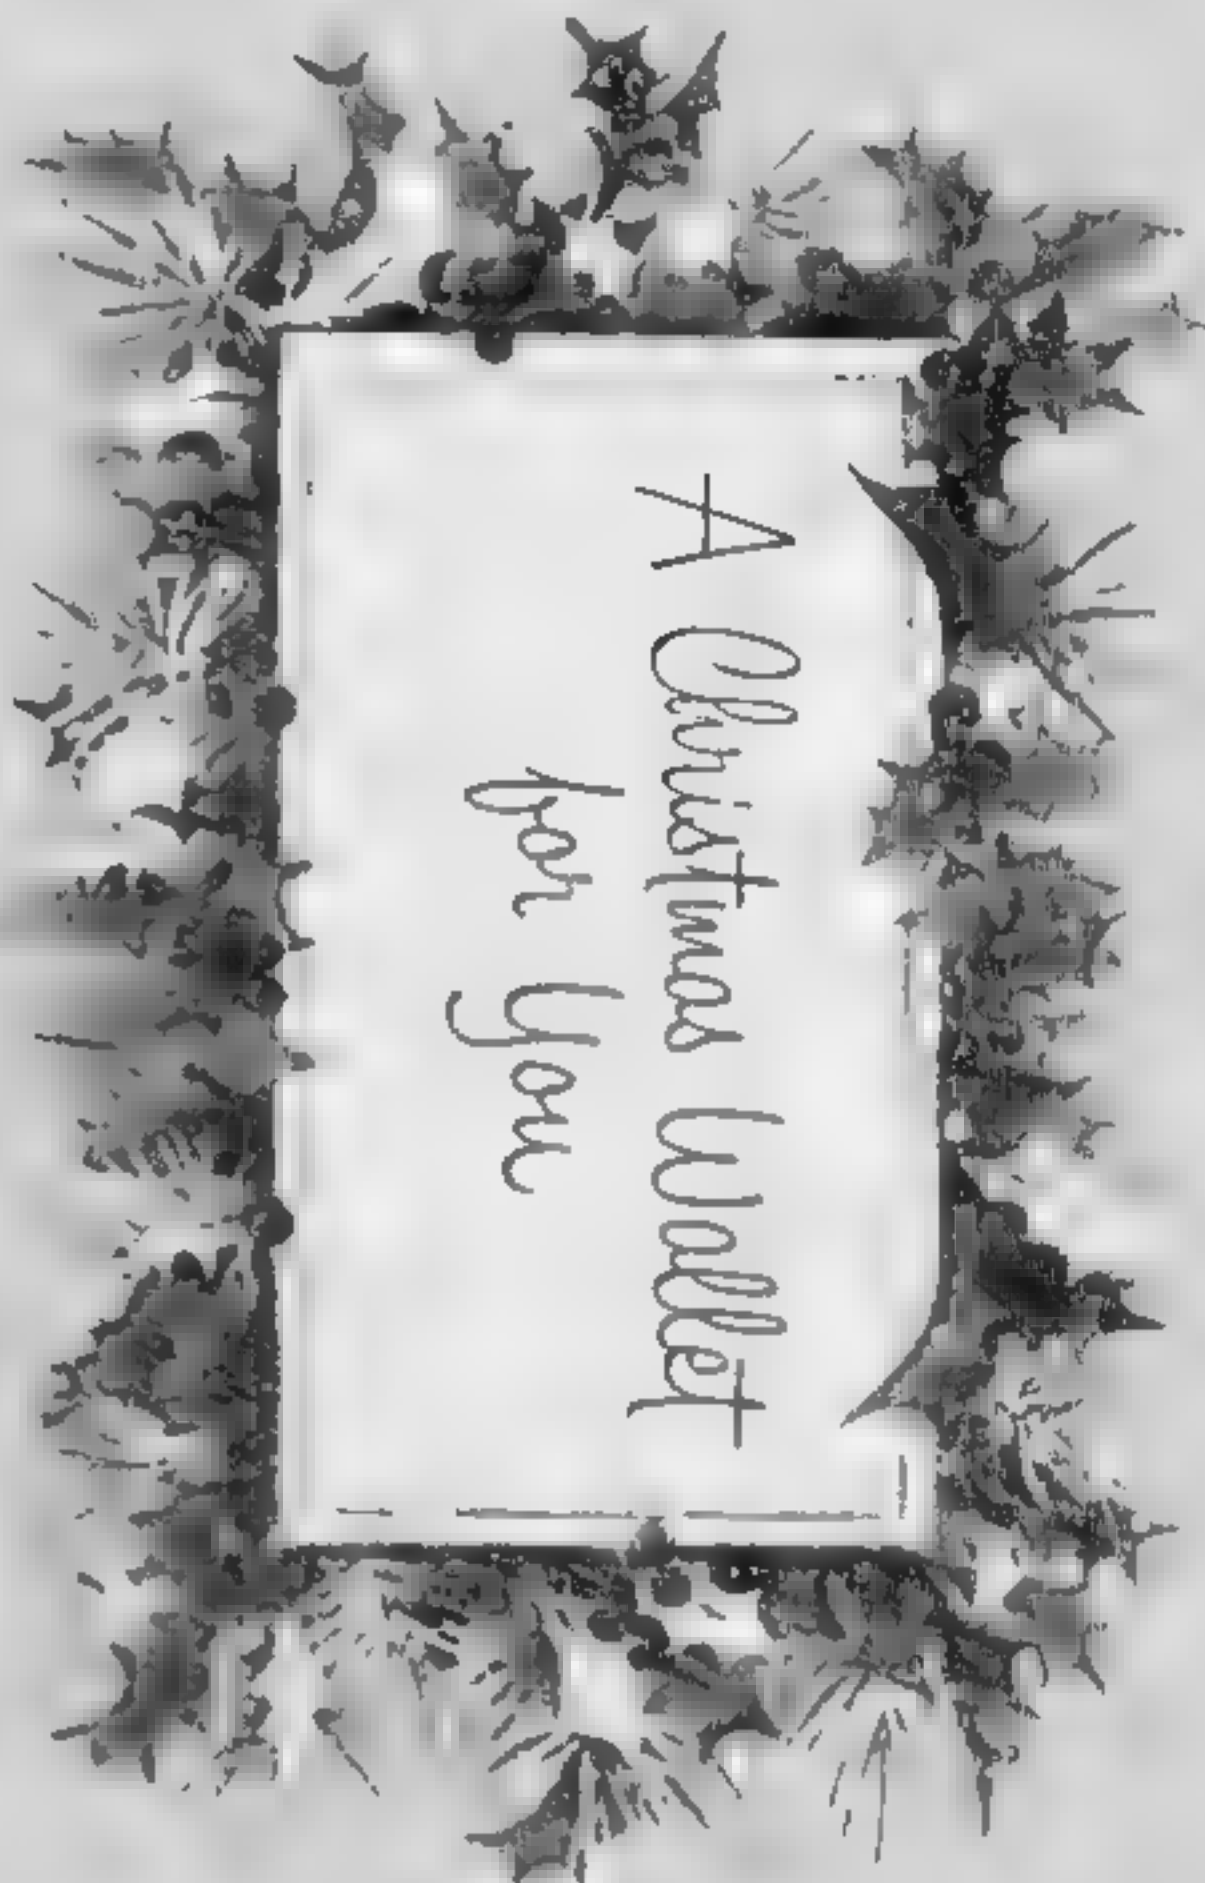 A Christmas Wallet
for You